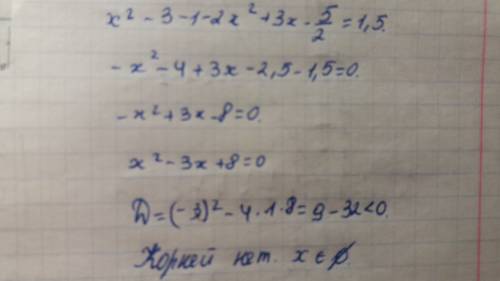 x² - 3 - 1 - 2x² + 3x - 5/2 = 1,5.
-x² - 4 + 3x - 2,5 - 1,5 = 0.
-x² + 3x - 8 = 0.
x² - 3x + 8 = 0
D = (-3)² - 4 · 1 · 8 = 9 - 32 < 0.
Корней нет. x ∈ ∅.